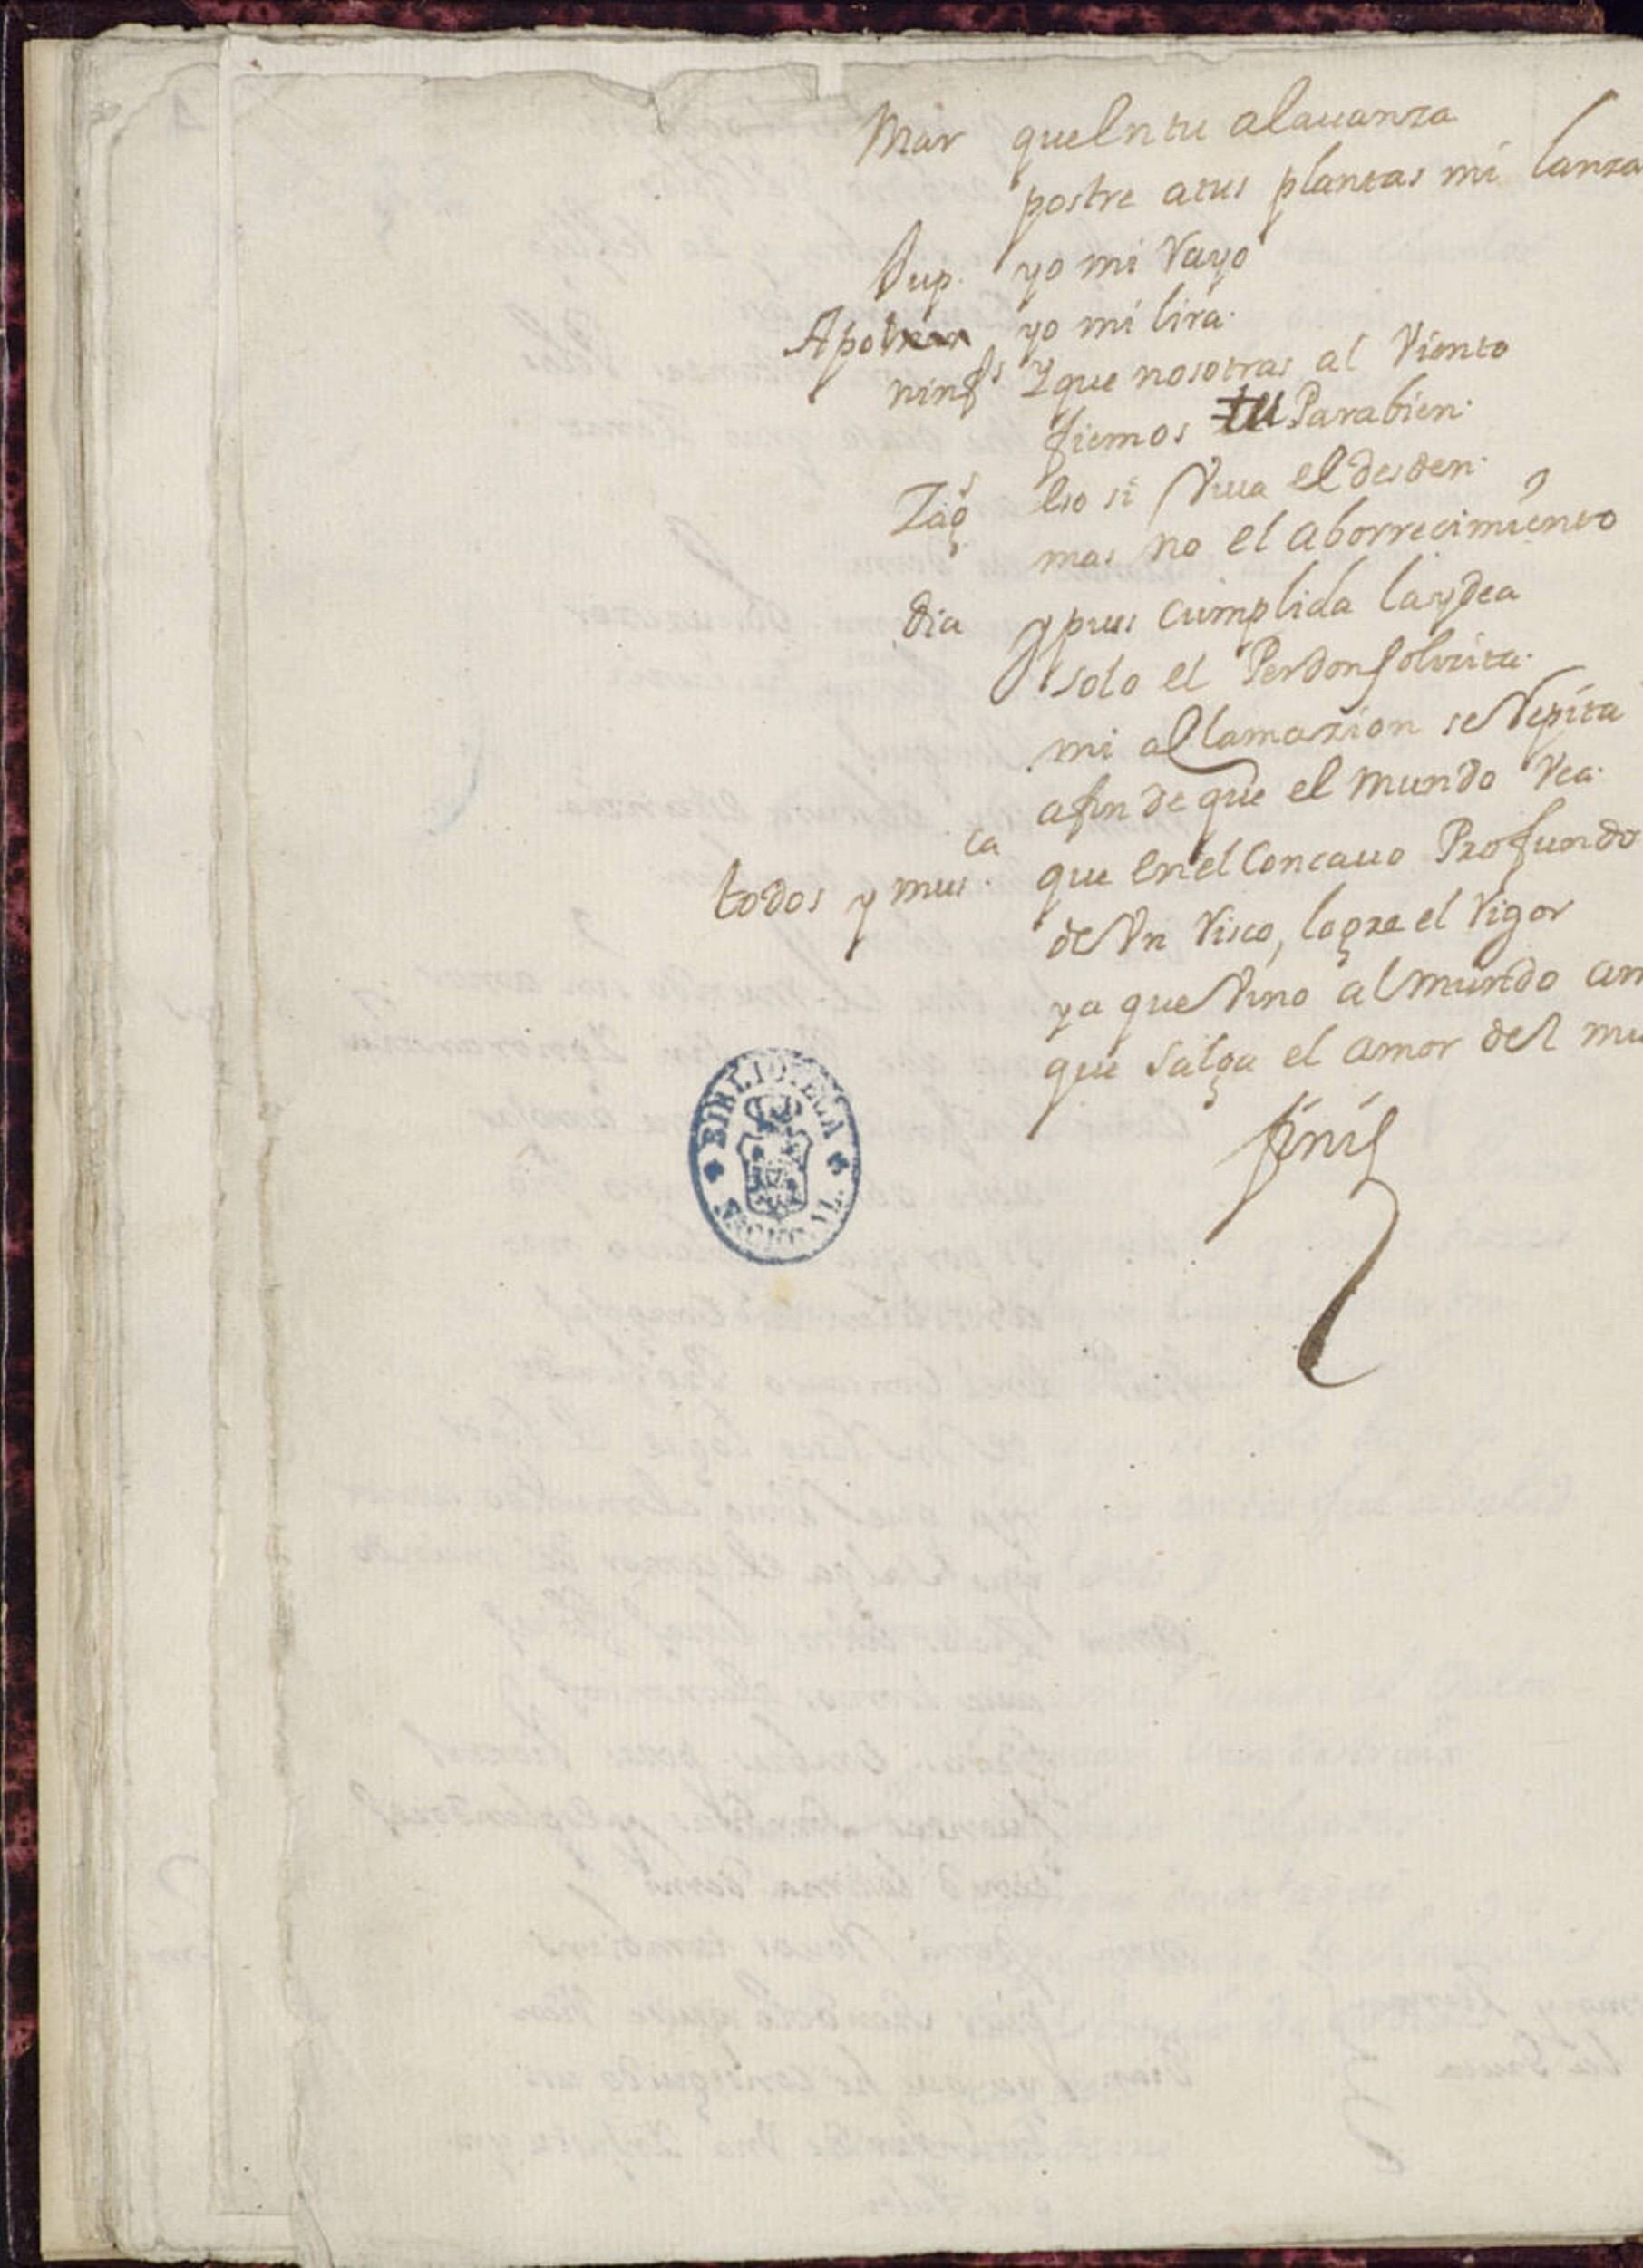 Mar quelntu alauanza
postre atus plantas mi lanza
Jup. yo mi Rayo
Apolo yo mi lira.
ninfs Yque nosotras al Viento
fiemos tu Parabien.
Zags eso si Viua el desden.
mas no el aborrecimiento
dia ypues cumplida laydea
solo el Perdon solicita.
mi acllamazion se Repita
afin de que el mundo Vea.
todos y musca. que enel Concauo Profundo
de Vn Risco, logre el Rigor
ya que Vino al mundo am
que salga el amor del mu
finis
BIBLIOTECA NACIONAL